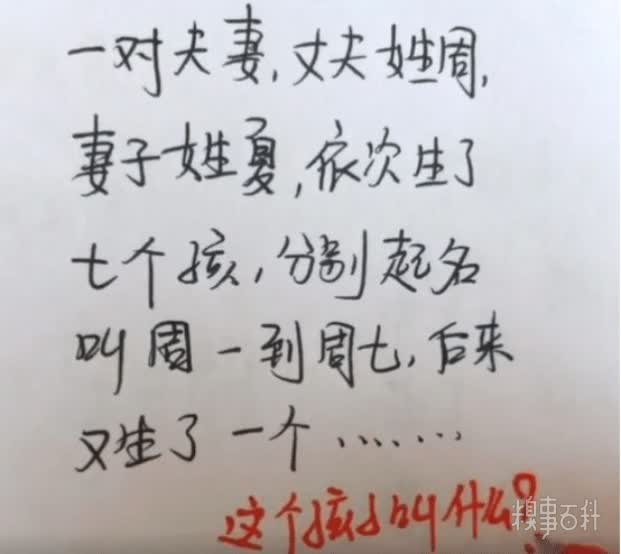 一对夫妻,丈夫姓周,
妻子姓夏,依次生了
七个孩,分别起名
叫周一到周七,后来
又生了一个……
这个孩子叫什么?
糗事百科